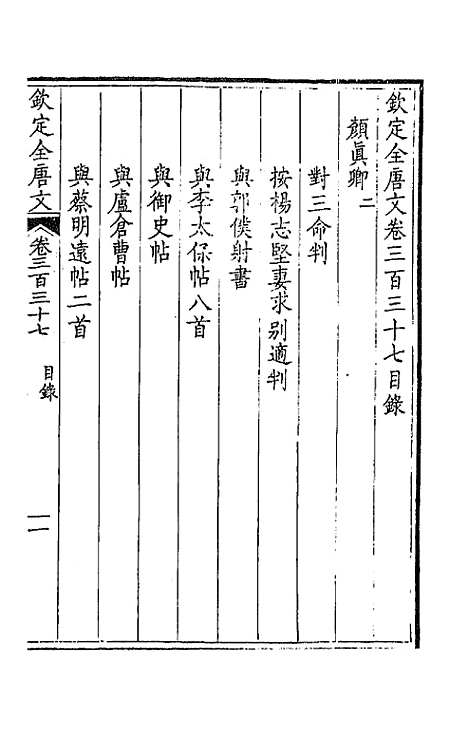 欽定全唐文卷三百三十七目錄
顏眞卿二
對三命判
按楊志堅妻求別適判
與郭僕射書
與李太保帖八首
與御史帖
與盧倉曹帖
與蔡明遠帖二首
欽定全唐文 卷三百三十七 目錄 一